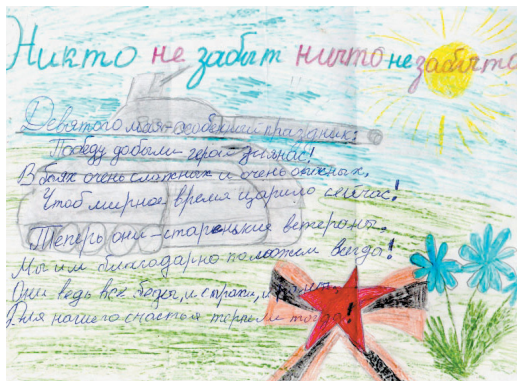 Никто не забыт ничто не забыто
Девятого мая - особенный праздник:
Победу добыли герои для нас!
В боях очень сложных и очень важных,
Чтоб мирное время царило сейчас!
Теперь они - старенькие ветераны,
Мы им благодарно поможем всегда!
Они ведь все боли, и страхи, и
Для нашего счастья терпели тогда!